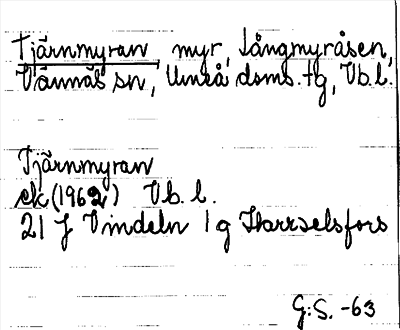 Tjärnmyran, myr, Långmyråsen,
Vännäs sn, Umeå doms. tg, Vb. l.
Tjärnmyran
ek (1962) Vb. l.
21 J Vindeln 1 g Harrselsfors
G:S. -63